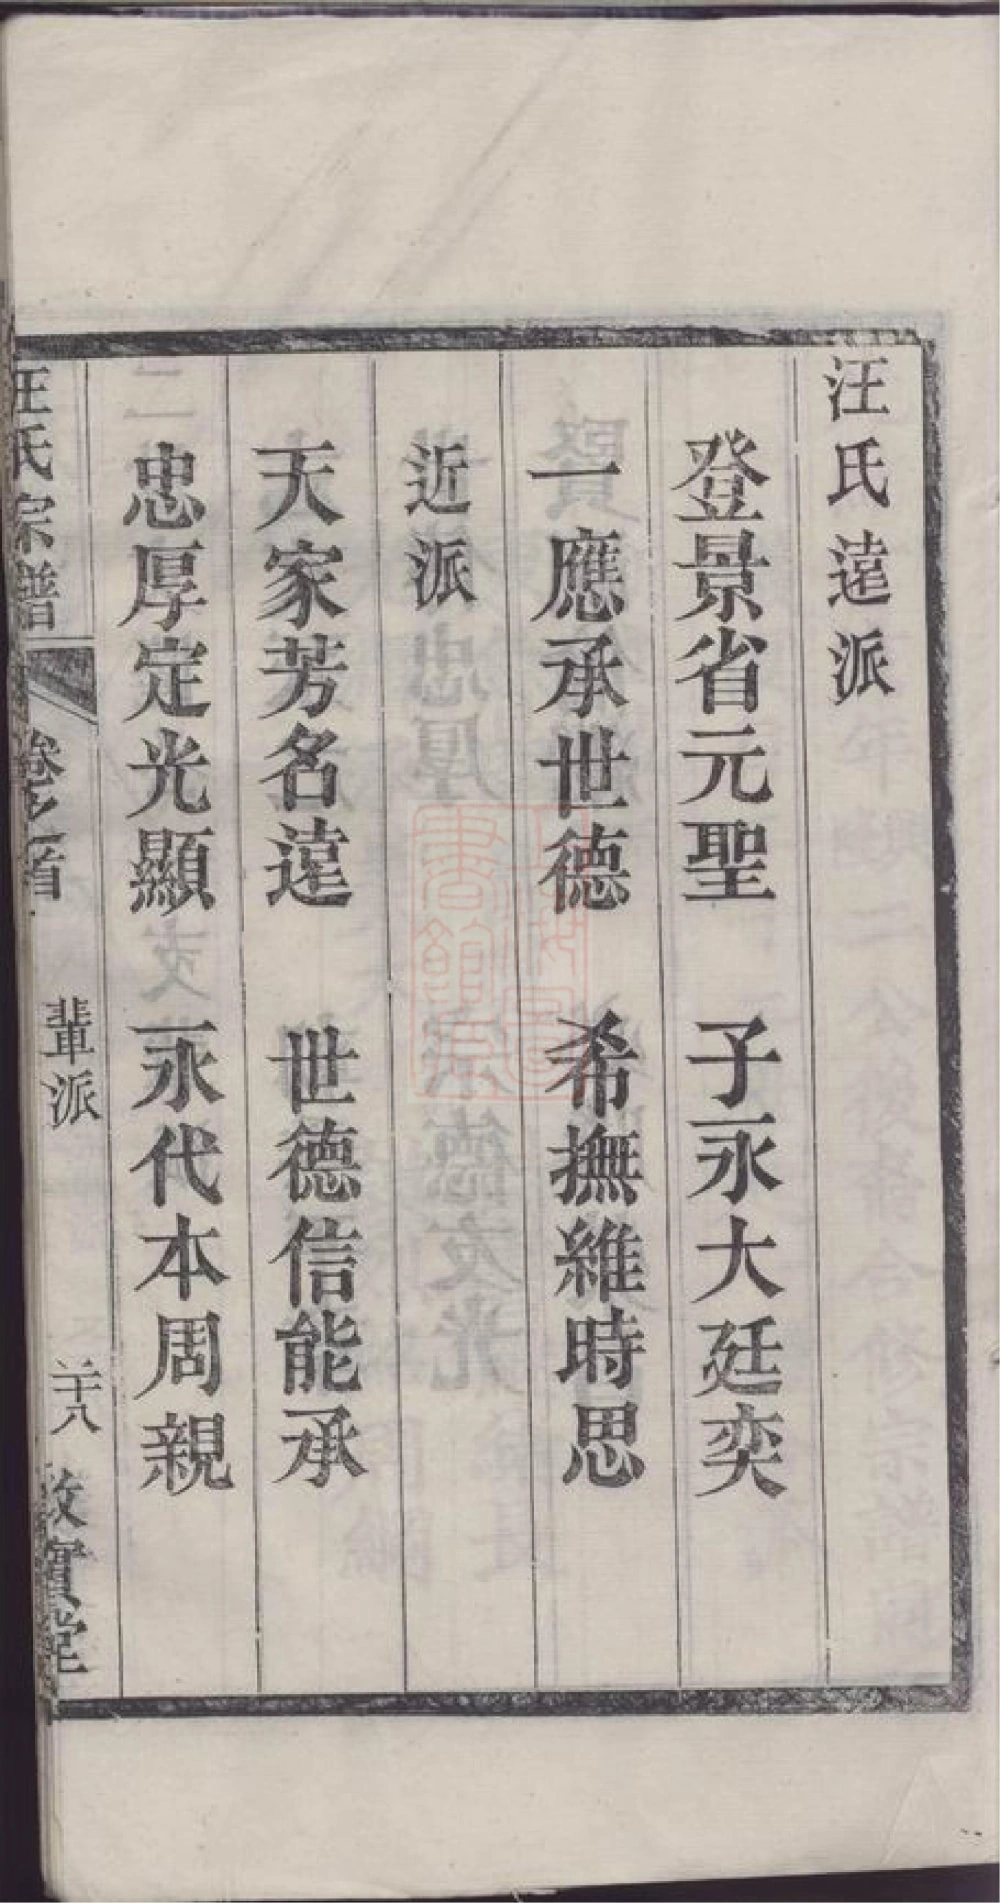 汪氏遠派
登景省元聖　子永大廷奕
一應承世德　希撫維時思
近派
天家芳名遠　世德信能承
忠厚定光顯　永代本周親
汪氏宗譜　卷之首　輩派　二十八　敦實堂